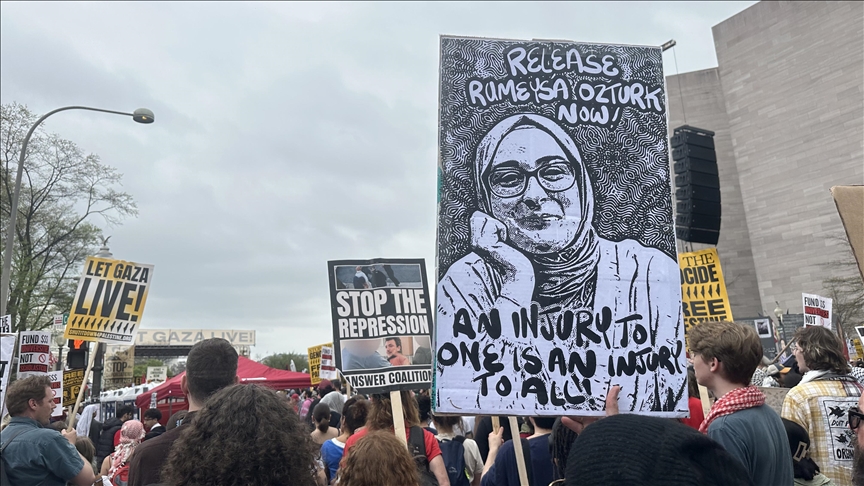 RELEASE
RUMEYSA OZTURK
NOW!
AN INJURY TO
ONE IS AN INJURY
TO ALL!
STOP THE
REPRESSION
ANSWER COALITION
LET GAZA
LIVE!
SHUTITDOWN4PALESTINE.ORG
LET GAZA LIVE!
STOP
FUND
NOT
THE
FREE
FUND
NOT